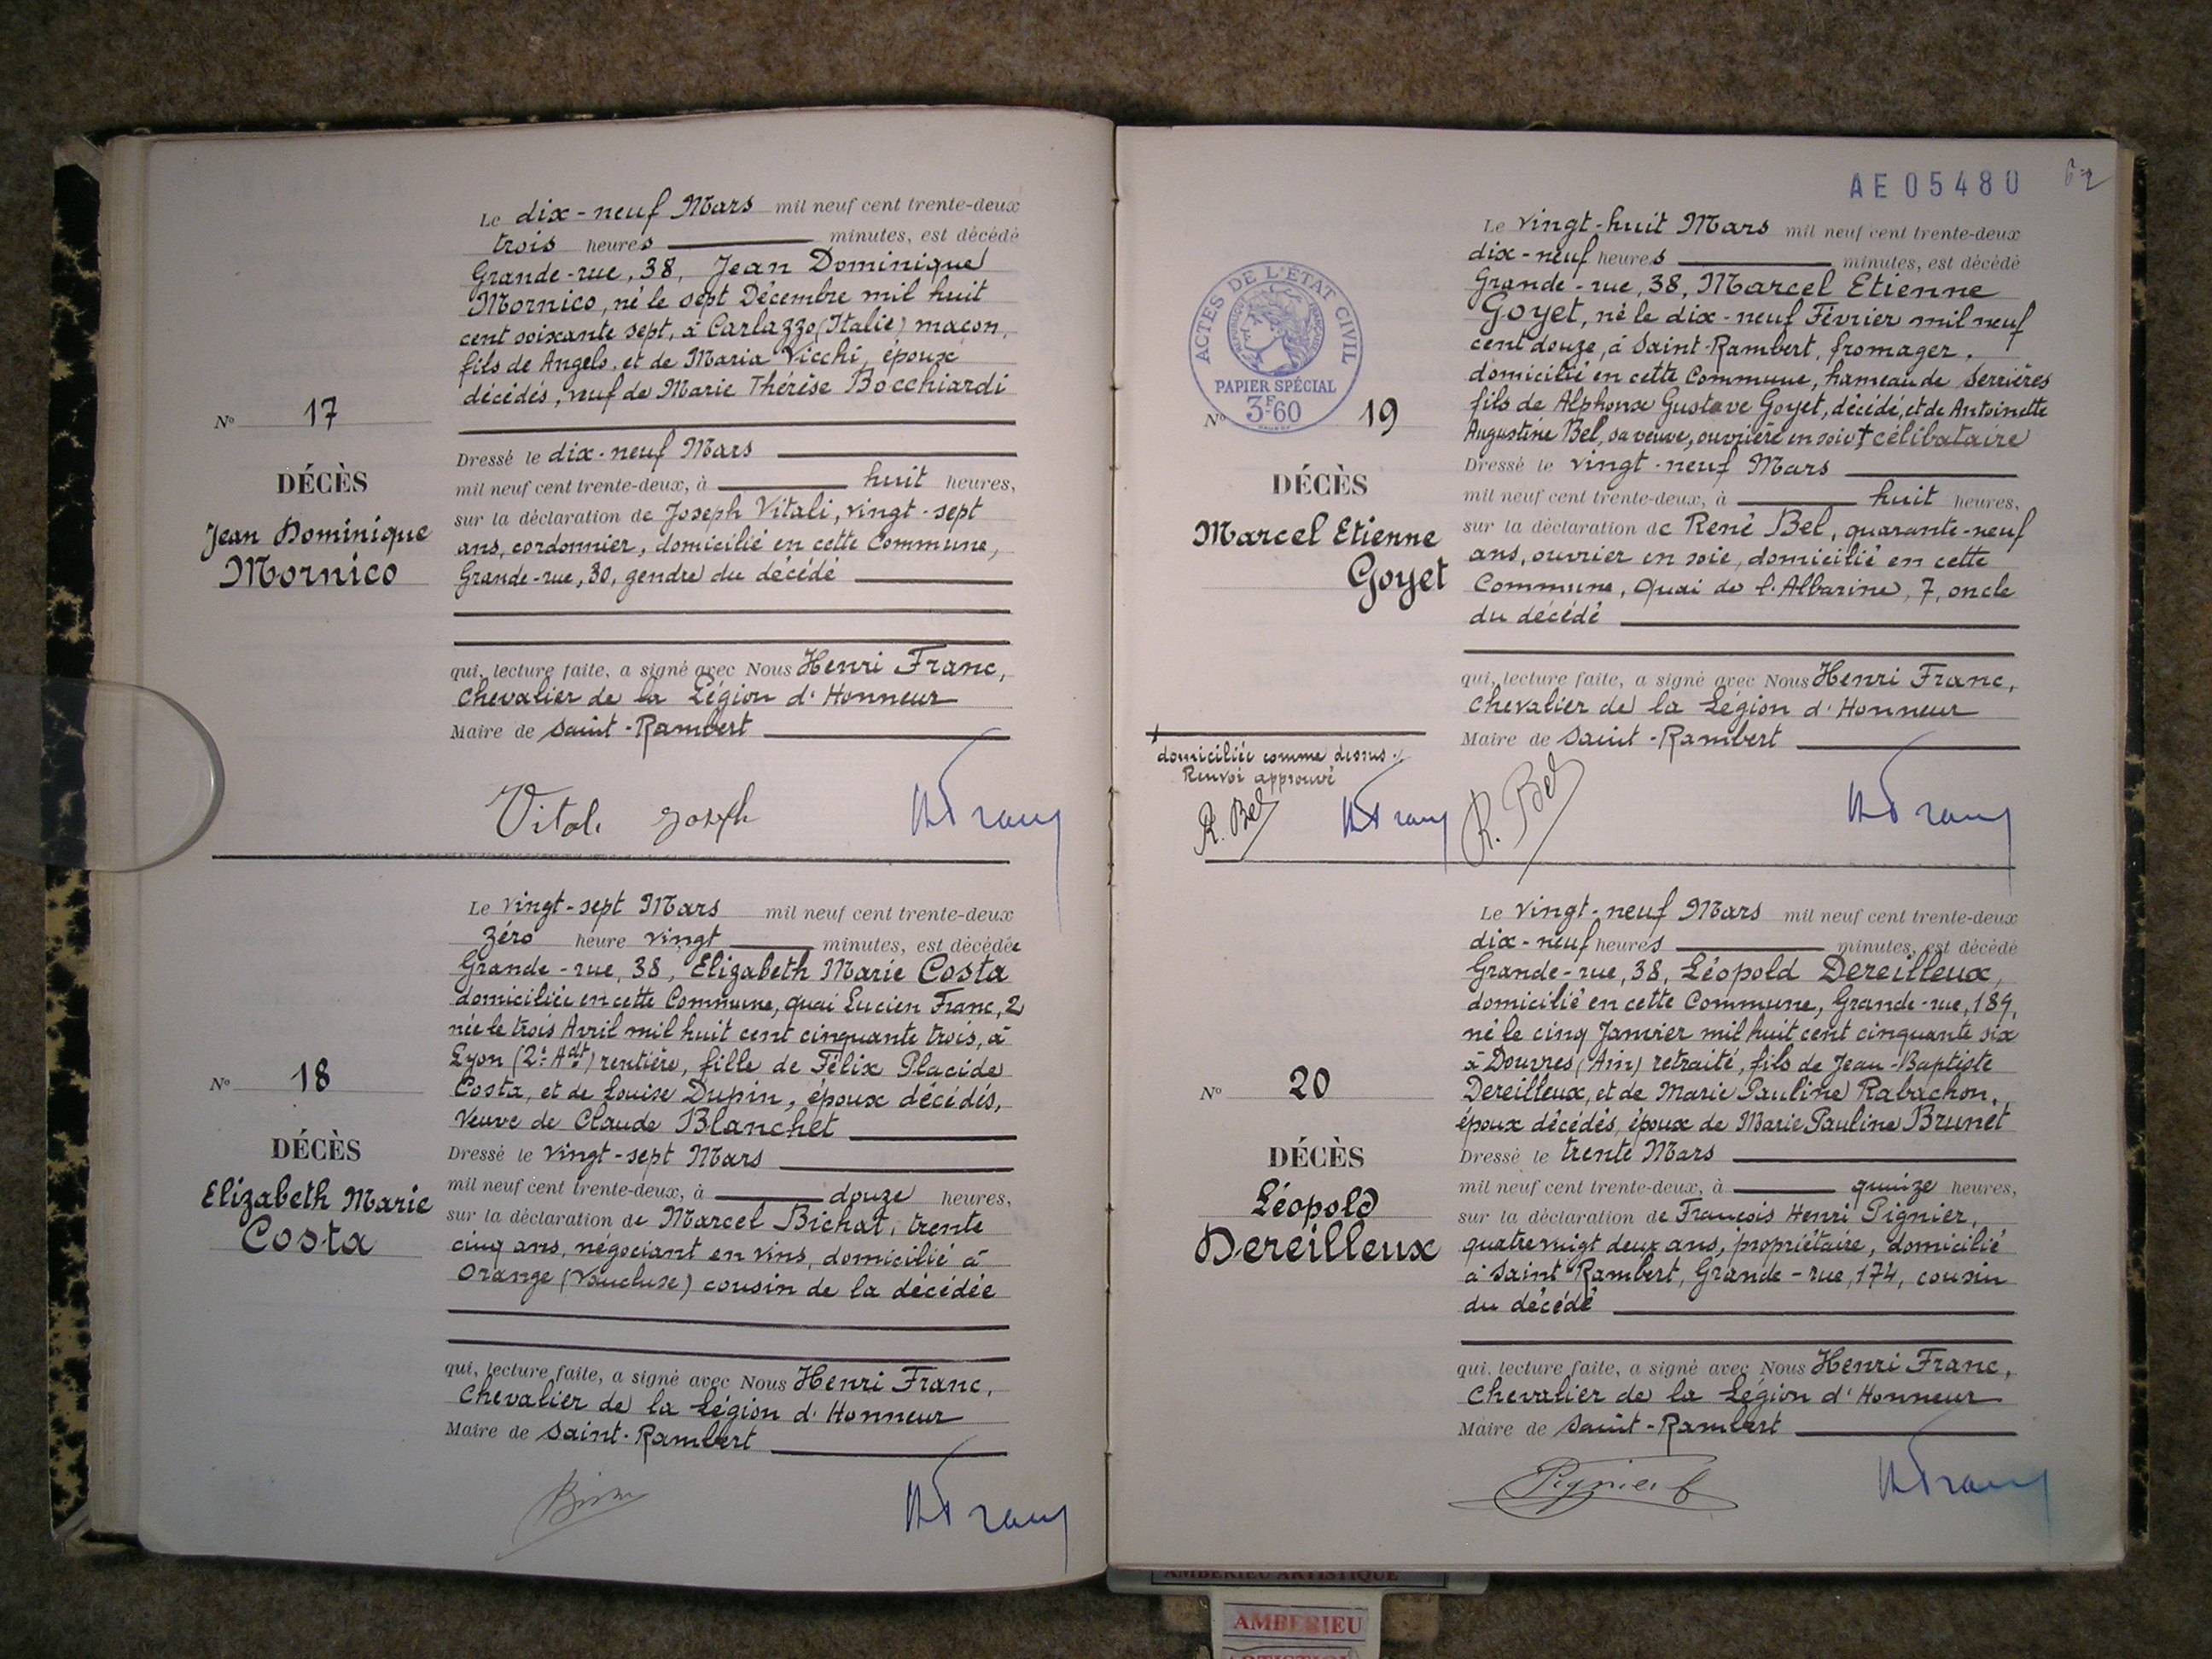 Le dix-neuf Mars mil neuf cent trente-deux
trois heures minutes, est décédé
Grande-rue, 38, Jean Dominique
Mornico, né le sept Décembre mil huit
cent soixante sept, à Carlazzo (Italie) maçon,
fils de Angelo, et de Maria Vicchi, époux
décédés, veuf de Marie Thérèse Bocchiardi
N° 17
DÉCÈS
Jean Dominique
Mornico
Dressé le dix-neuf Mars
mil neuf cent trente-deux, à huit heures,
sur la déclaration de Joseph Vitali, vingt-sept
ans, cordonnier, domicilié en cette Commune,
Grande-rue, 30, gendre du décédé
qui, lecture faite, a signé avec Nous Henri Franc,
Chevalier de la Légion d'Honneur
Maire de Saint-Rambert
Vitali Joseph
HFranc
Le vingt-sept Mars mil neuf cent trente-deux
Zéro heure vingt minutes, est décédée
Grande-rue, 38, Elizabeth Marie Costa
domiciliée en cette Commune, quai Lucien Franc, 2
née le trois Avril mil huit cent cinquante trois, à
Lyon (2e Adt) rentière, fille de Félix Placide
Costa, et de Louise Dupin, époux décédés,
Veuve de Claude Blanchet
N° 18
DÉCÈS
Elizabeth Marie
Costa
Dressé le vingt-sept Mars
mil neuf cent trente-deux, à douze heures,
sur la déclaration de Marcel Bichat, trente
cinq ans, négociant en vins, domicilié à
Orange (Vaucluse) cousin de la décédée
qui, lecture faite, a signé avec Nous Henri Franc,
Chevalier de la Légion d'Honneur
Maire de Saint-Rambert
HFranc
AE05480
62
Le vingt-huit Mars mil neuf cent trente-deux
dix-neuf heures minutes, est décédé
Grande-rue, 38, Marcel Etienne
Goyet, né le dix-neuf Février mil neuf
cent douze, à Saint-Rambert, fromager,
domicilié en cette Commune, hameau de Serrières
fils de Alphonse Gustave Goyet, décédé, et de Antoinette
Augustine Bel, sa veuve, ouvrière en soie + célibataire
ACTES DE L'ÉTAT CIVIL
RÉPUBLIQUE FRANÇAISE
PAPIER SPÉCIAL
3F60
N° 19
DÉCÈS
Marcel Etienne
Goyet
Dressé le vingt-neuf Mars
mil neuf cent trente-deux, à huit heures,
sur la déclaration de René Bel, quarante-neuf
ans, ouvrier en soie, domicilié en cette
Commune, Quai de l'Albarine, 7, oncle
du décédé
qui, lecture faite, a signé avec Nous Henri Franc,
Chevalier de la Légion d'Honneur
Maire de Saint-Rambert
+
domiciliée comme dessus ./.
Renvoi approuvé
R. Bel HFranc R. Bel HFranc
Le vingt-neuf Mars mil neuf cent trente-deux
dix-neuf heures minutes, est décédé
Grande-rue, 38, Léopold Dereilleux,
domicilié en cette Commune, Grande-rue, 189,
né le cinq Janvier mil huit cent cinquante six
à Douvres (Ain) retraité, fils de Jean-Baptiste
Dereilleux, et de Marie Pauline Rabachon,
époux décédés, époux de Marie Pauline Brunet
N° 20
DÉCÈS
Léopold
Dereilleux
Dressé le trente Mars
mil neuf cent trente-deux, à quinze heures,
sur la déclaration de François Henri Pignier,
quatrevingt deux ans, propriétaire, domicilié
à Saint Rambert, Grande-rue, 174, cousin
du décédé
qui, lecture faite, a signé avec Nous Henri Franc,
Chevalier de la Légion d'Honneur
Maire de Saint-Rambert
Pignier f
HFranc
AMBERIEU ARTISTIQUE
AMBERIEU
ARTISTIQUE